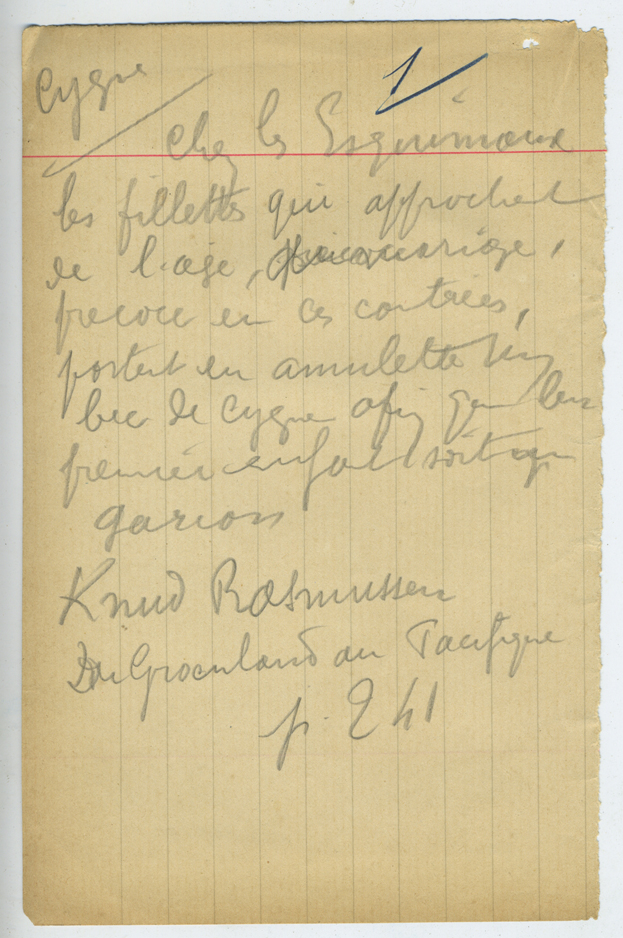 Cygne
1
Chez les Esquimaux
les fillettes qui approchent
de l'age, mariage,
precoce en ces contrées,
portent en amulette un
bec de cygne afin que leur
premier enfant soit un
garcon
Knud Rasmussen
Du Groenland au Pacifique
p. 241